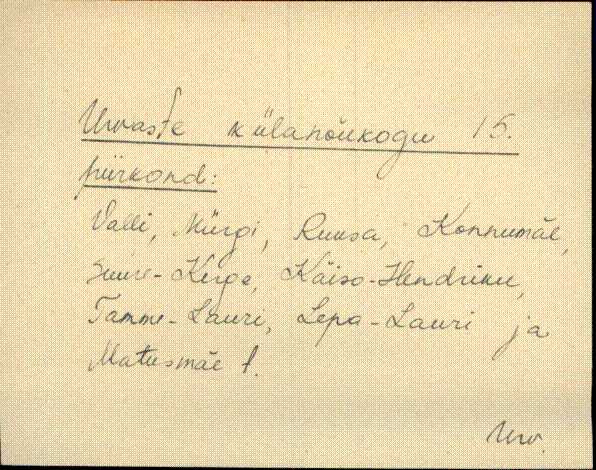 Urvaste külanõukogu 15.
piirkond:
Valli, Mürgi, Ruusa, Konnumäe,
Suure-Kirge, Käiso-Hendriku,
Tamme-Lauri, Lepa-Lauri ja
Matusmäe t.
Urv.